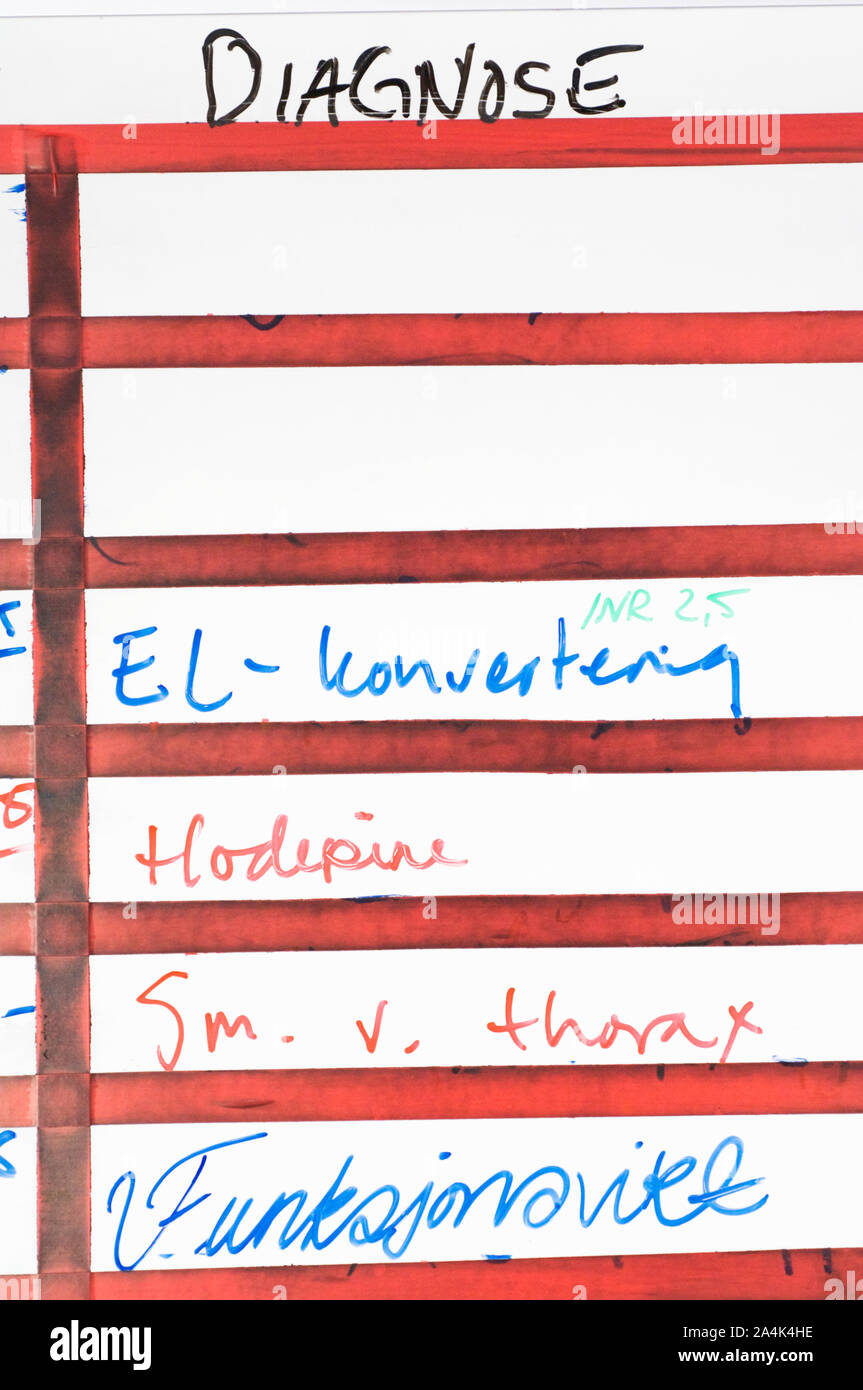 DIAGNOSE
INR 2,5
EL-konvertering
Hodepine
Sm. v. thorax
Funksjonsvikt
alamy
Image ID: 2A4K4HE
www.alamy.com